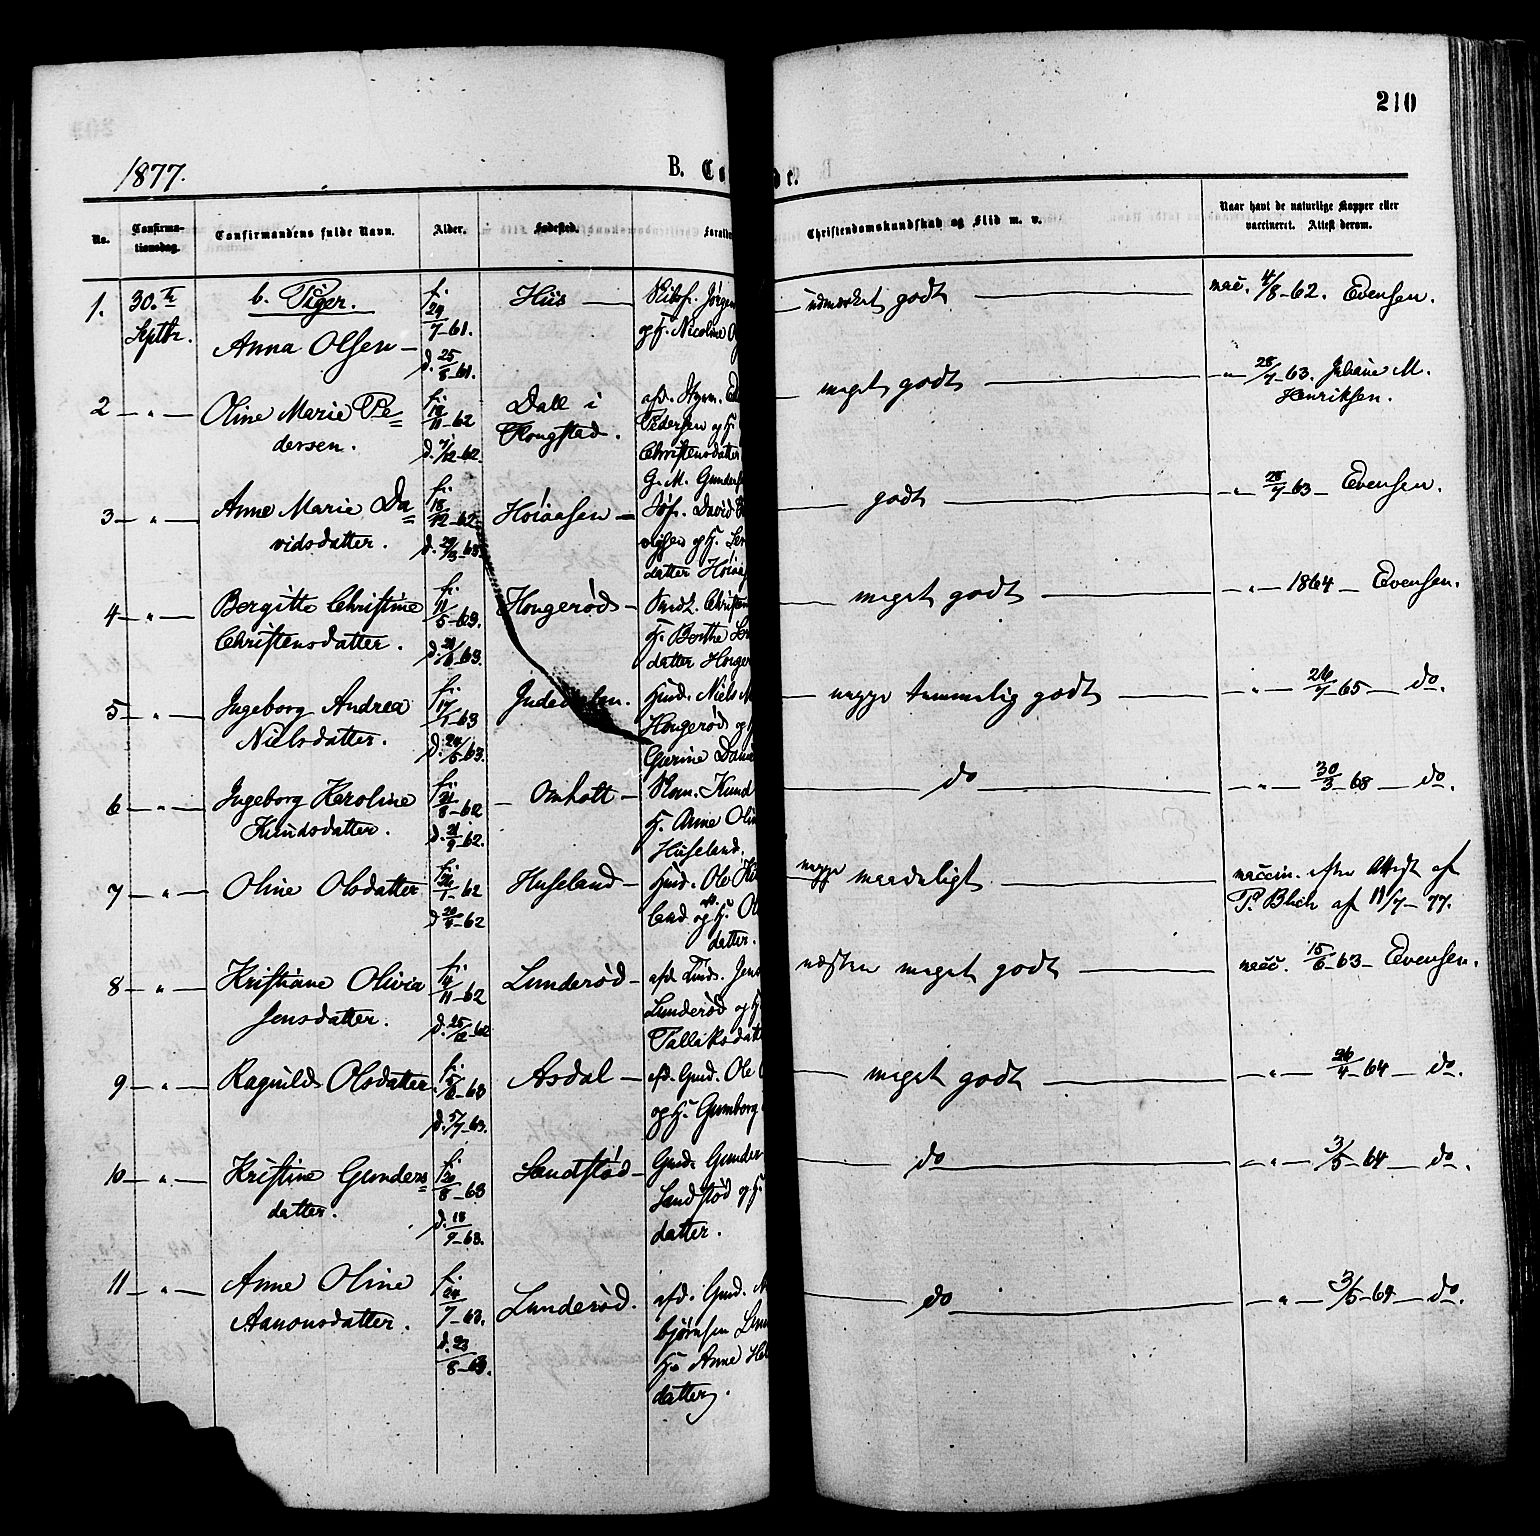 210
1877.
B. Co
der.
No.
Confirma-
tionsdag.
Confirmandens fulde Navn.
Alder.
Fødested.
Forældre
Christendomskundskab og Flid m. v.
Naar havt de naturlige Kopper eller
vaccineret. Attest derom.
1.
30. te
Septbr.
b. Piger.
Anna Olsen
f. 29/7-61.
d. 25/8-61.
Hiis
Skibsf. Jørgen
og H. Nicoline
udmærket godt
vacc. 4/8-62. Evensen.
2 — " —
Oline Marie Pe=
dersen.
f. 19/11-62
d. 7/12-62.
Dall i
Kongstad.
afd. Styrm.
Pedersen og H.
Christensdatter
meget godt
— " — 28/7-63. Juliane M.
Henriksen.
3 — " —
Anne Marie Da=
vidsdatter.
f. 18/12-62
d. 29/3-63.
Hoiaasen
G. M. Gunders
Søf. David
datter Hoiaas
godt
— " — 28/7 63 — Evensen.
4 — " —
Bergitte Christine
Christensdatter.
f. 11/5-63.
d. 21/6-63.
Hougerød
Christen
H. Berthe
datter Houger
meget godt
— " — 1864 — Evensen.
5 — " —
Ingeborg Andrea
Nielsdatter.
f. 17/4-63
d. 24/5-63.
Hmd. Niels
Hougerød og
Gurine
neppe temmelig godt
— " — 26/7-65 — do.
6 — " —
Ingeborg Karoline
Knudsdatter.
f. 21/8-62
d. 21/9-62.
Omholt
Knud
H. Anne Olin
Huseland.
do
— " — 30/3-68 — do.
7 — " —
Oline Olsdatter
f. 26/1-62
d. 20/4-62
Huseland
Hmd. Ole
land og H. Ol
datter.
neppe maadeligt
vaccin. efter Attest af
P. Blich af 11/7-77.
8 — " —
Kristiane Olivia
Jensdatter.
f. 14/11-62
d. 25/12-62
Lunderød
afd. Jens
Lunderød og H
Tallaksdatt
næsten meget godt
vacc. 15/6-63 — Evensen.
9 — " —
Ragnild Olsdatter.
f. 5/6-63
d. 5/7-63.
Asdal
afd. Gmd. Ole
og H. Gumborg
meget godt
— " — 26/4-64 — do.
10 — " —
Kristine Gunders=
datter.
f. 20/8-63
d. 18/9-63.
Sandstød
Gmd. Gunder
Sandstød og H.
datter.
do
— " — 3/5-64 — do.
11 — " —
Anne Oline
Aanonsdatter.
f. 24/7-63.
d. 23/8-63.
Lunderød.
afd. Gmd. A
bjørnsen Lun
H. Anne Hel
datter.
do
— " — 3/5-64 — do.